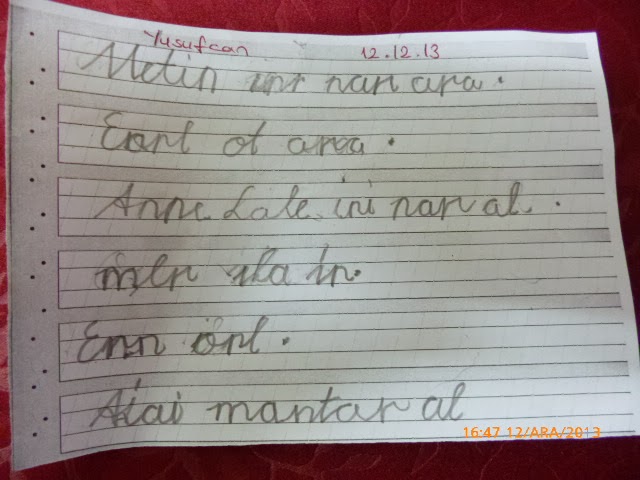 Yusufcan 12.12.13
Metin ini nar ara.
Eant ot area.
Anne Lale ini nar al.
ila in.
Enn önl.
Alai mantar al
16:47 12/ARA/2013